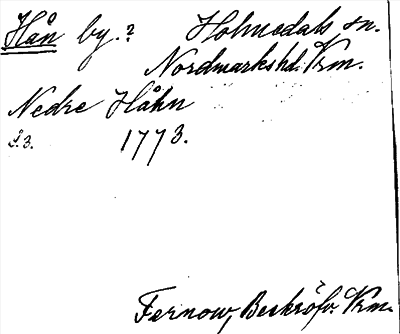 Hån by.? Holmedals sn.
Nordmarks hd. Vrm.
Nedre Håhn
s. 3. 1773.
Fernow, Beskrifv. Vrm.